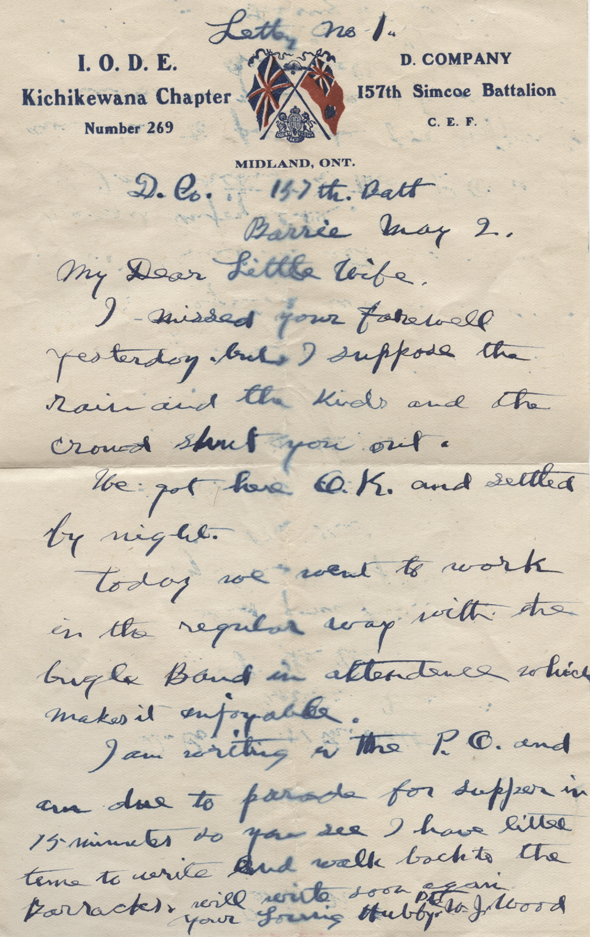 Letter No 1.
I. O. D. E.
Kichikewana Chapter
Number 269
D. COMPANY
157th Simcoe Battalion
C. E. F.
MIDLAND, ONT.
D. Co. 157th. Batt
Barrie May 2.
My Dear Little Wife.
I missed your farewell
yesterday but I suppose the
rain and the kids and the
crowd shut you out.
We got here O.K. and settled
by night.
Today we went to work
in the regular way with the
bugle Band in attendence which
makes it enjoyable.
I am writing in the P. O. and
am due to parade for supper in
15 minutes so you see I have little
time to write and walk back to the
Barracks. will write soon again
your Loving Hubby W. J. Wood